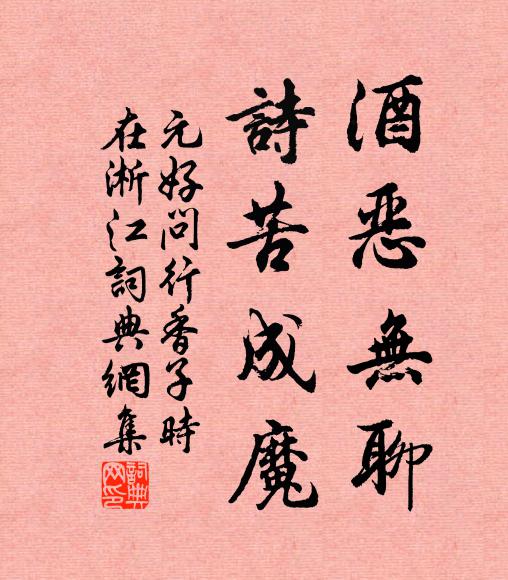 酒恶無聊
詩苦成魔
元好问行香子時
在淅江詞典網集
詞典
网印